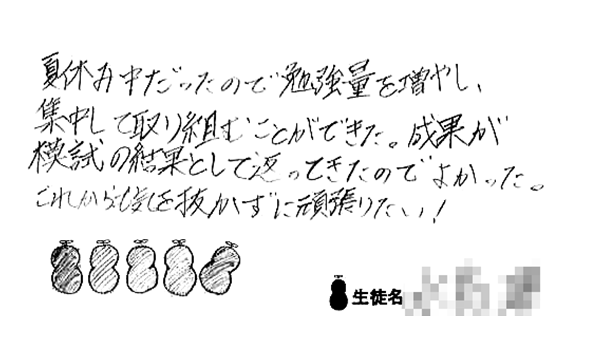 夏休み中だったので勉強量を増やし、
集中して取り組むことができた。成果が
模試の結果として返ってきたのでよかった。
これからも気を抜かずに頑張りたい！
生徒名